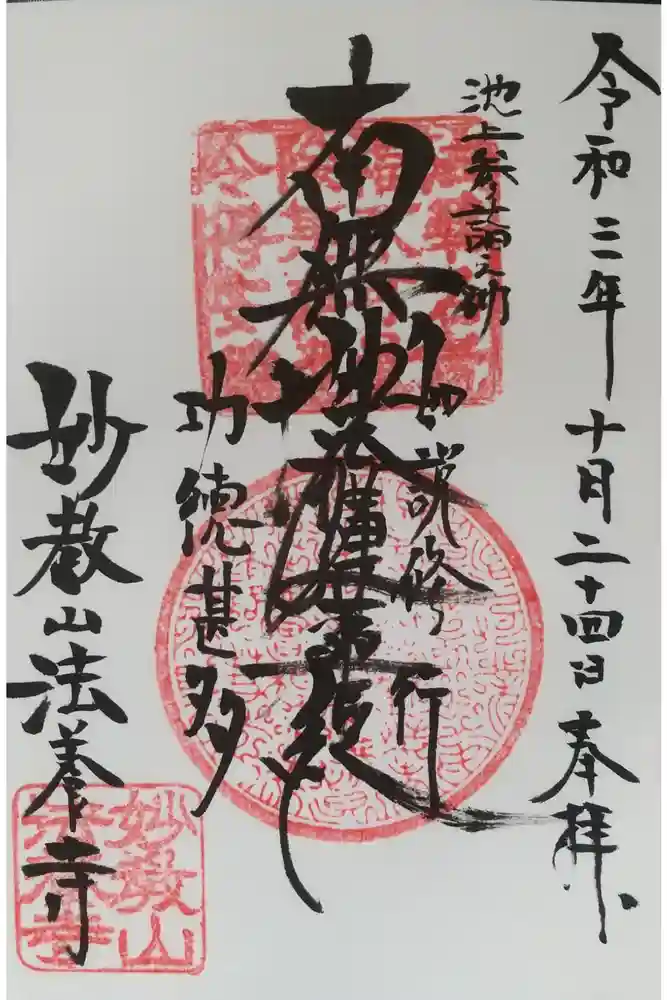 令和三年十月二十四日奉拝
池上参詣之砌
如説修行
南無妙法蓮華経
功徳甚多
妙教山法養寺
妙教山
法養寺